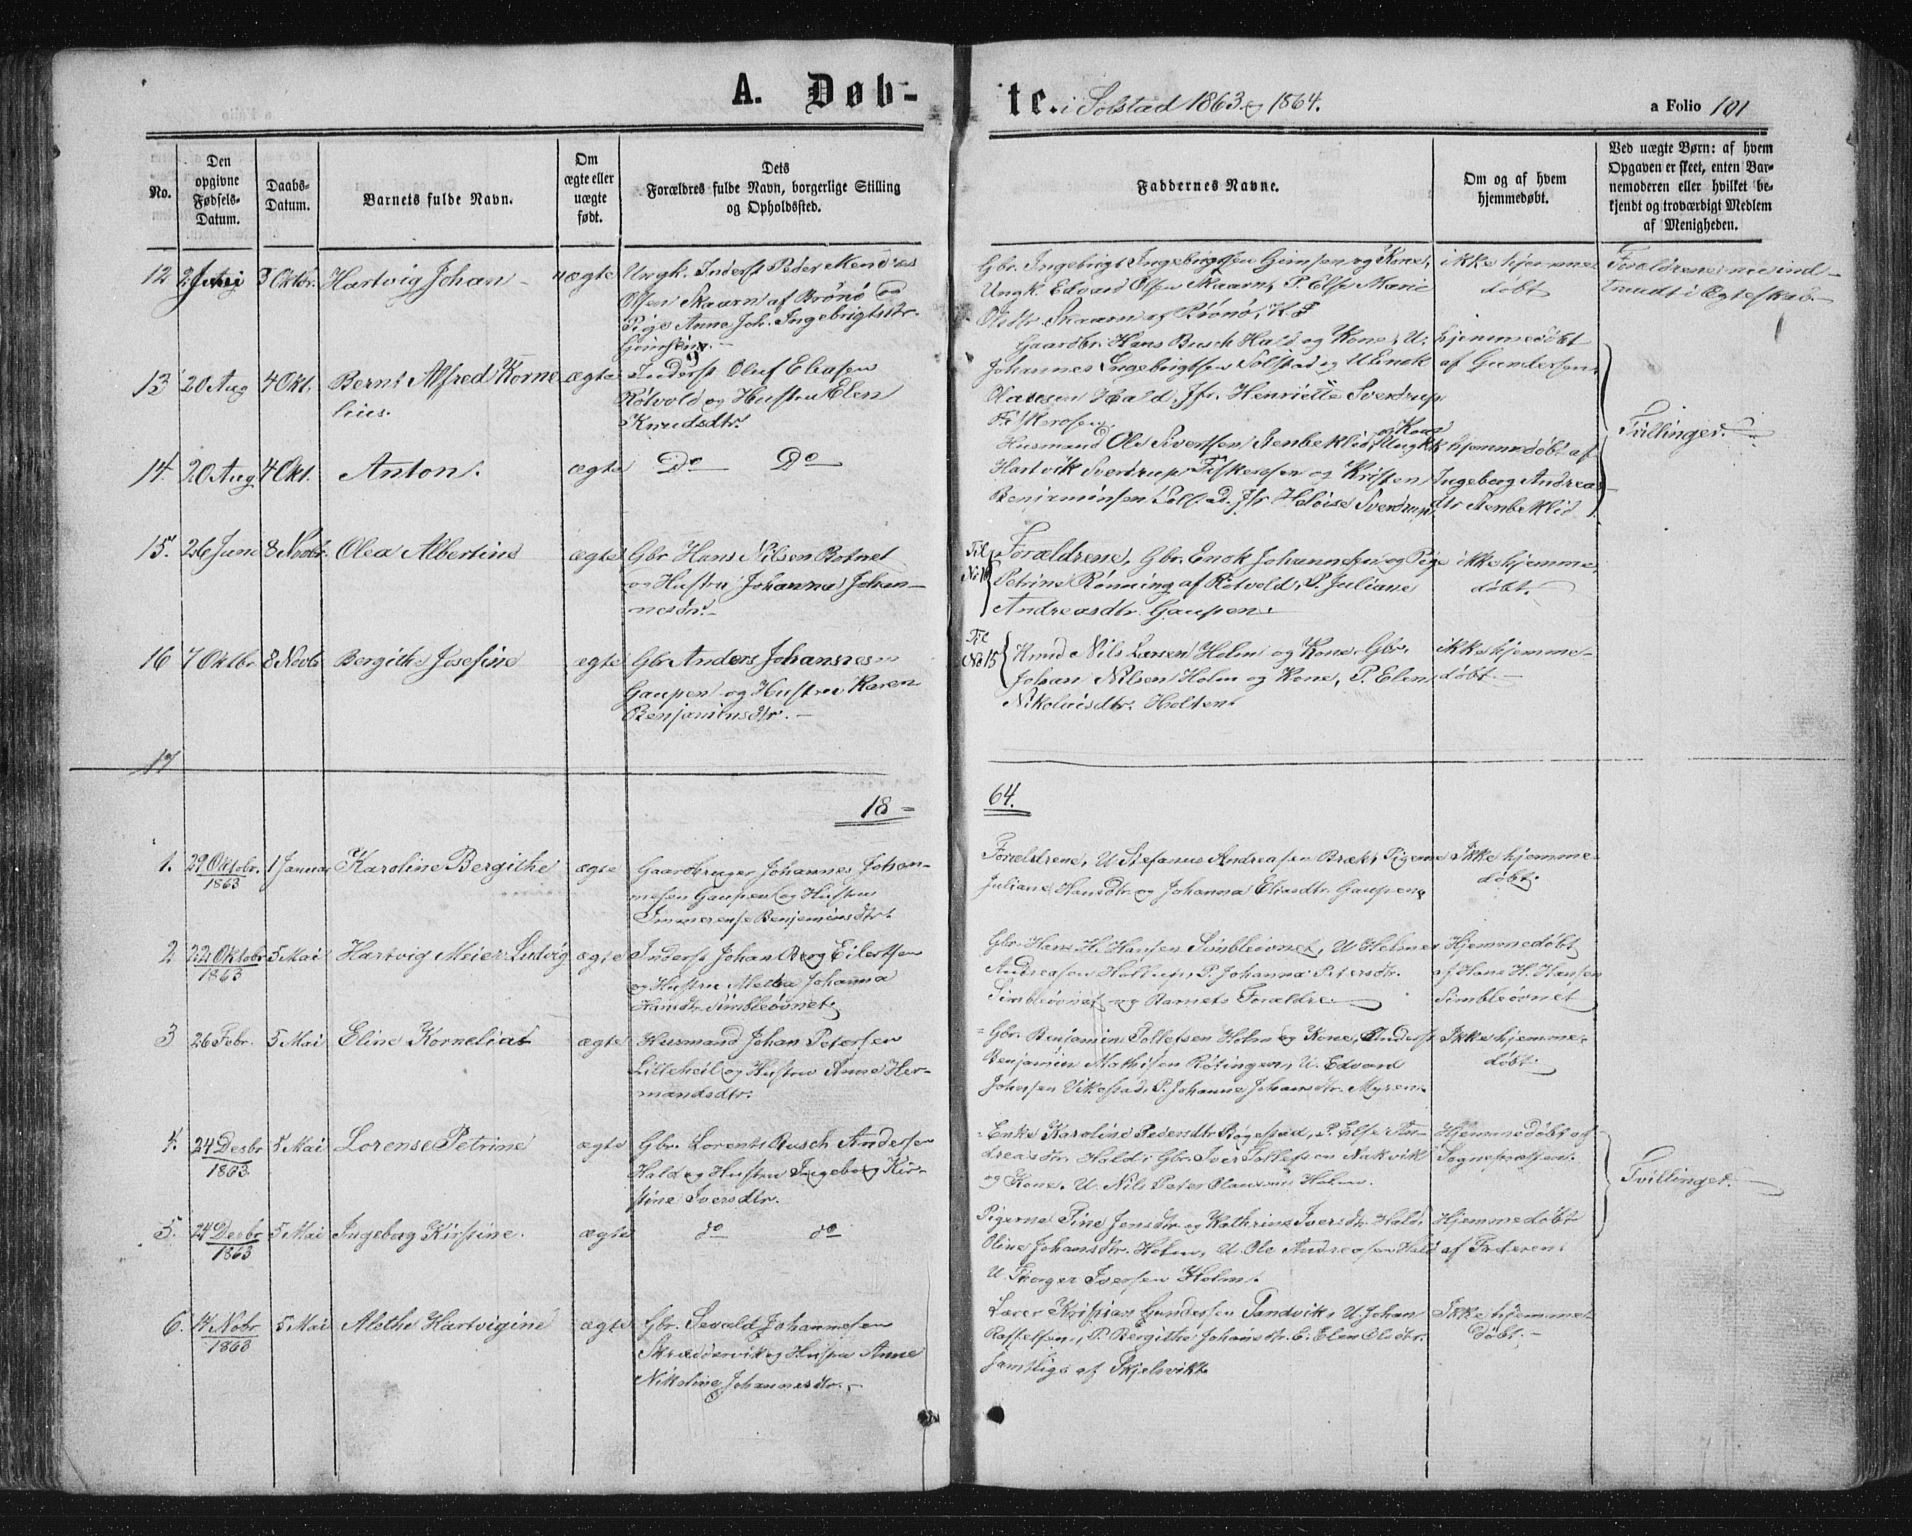 A. Døb-
te. i Solstad 1863 og 1864.
a Folio 101
No.
Den opgivne Fødsels-Datum.
Daabs-Datum.
Barnets fulde Navn.
Om ægte eller uægte født.
Dets Forældres fulde Navn, borgerlige Stilling og Opholdssted.
Faddernes Navne.
Om og af hvem hjemmedøbt.
Ved uægte Børn: af hvem
Opgaven er skeet, enten Bar-
nemoderen eller hvilket be-
kjendt og troværdigt Medlem
af Menigheden.
12 Juni 3 Oktbr. Hartvig Johan uægte Ungk. Inderst Peder
Olsen Skaarn af Brønø og
Pige Anne Joh. Ingebrigtsdtr.
Gbr. Ingebrigt Ingebrigtsen og Kone,
Ungk. Edvard Olsen Skaarn, P. Else Marie
Olsdtr Skaarn af Brønø,
ikke hjemme
døbt
Forældrene ind
traadt i Ægteskab
13 20 Aug 4 Okt. Bernt Alfred Korne-
lius. ægte Inderst Oluf Eliasen
Røtvold og Hustru Elen
Knudsdtr.
Gaardbr. Hans Busch Hald og Kone, U.
Johannes Ingebrigtsen Solstad og U Enok
Hansen Hald, Jfr. Henriette Sverdrup
Fiskerosen.
hjemmedøbt
af Gundersen.
14. 20 Aug 4 Okt. Anton. ægte Do Do
Husmand Ole Sivertsen Stenbeklid og Kone, Ungk
Hartvik Sverdrup Fiskerosen og Kristen
Benjaminsen Jfr Heloise Sverdrup
hjemmedøbt af
Ingeborg Andreas
dtr Stenbeklid
Tvillinger.
15. 26 Juni 8 Novbr. Olea Albertine ægte Gbr Hans Nilsen Botnet
og Hustru Johanna Johan-
nesdtr.
Til No 16 Forældrene, Gbr. Enok Johannesen og Pige
Petrine Rønning af Røtvold, P. Juliane
Andreasdtr. Gaupen.
ikke hjemme
døbt.
16 7 Oktbr 8 Novbr Bergithe Josefine ægte Gbr Anders Johannesen
Gaupen og Hustru Karen
Benjaminsdtr.
Til No 15 Nils Larsen Holm og Kone, Gbr.
Johan Nilsen Holm og Kone, P. Elen
Nikolaisdtr. Holten.
ikke hjemme-
døbt.
17
18 -
64.
1. 29 Oktobr. 1863 1 Januar Karoline Bergithe ægte Gaardbruger Johannes Johan-
nesen Gaupen og Hustru
Immerense Benjaminsdtr.
Forældrene, U Stefanus Andreasen Bræk, Pigerne
Juliane Hansdtr. og Johanna Eliasdtr. Gaupen,
Ikke hjemme-
døbt.
2 22 Oktobr 1863 5 Mai Hartvig Meier Ludvig ægte Inderst Johan Berg Eilertsen
og Hustru Aletta Johanna
Hansdtr. Simbleøvnet,
Gbr. Hans H. Hansen Simbleøvnet, U. Helmer
Andreasen P. Johanna Petersdtr.
Simbleøvnet og Barnets Forældre.
Hjemmedøbt
af Hans H. Hansen
Simbleøvnet
3 26 Febr. 5 Mai Eline Kornelia ægte Husmand Johan Petersen
Litleheil og Hustru Anne Her-
mandsdtr.
Gbr. Benjamin Tollefsen Holm og Kone, Inderst
Benjamin Mathisen Røtingen, U. Edvard
Johnsen Vikestad, P. Johanne Johansdtr. Myren.
Ikke hjemme-
døbt.
4. 24 Desbr 1863 5 Mai Lorense Petrine ægte Gbr. Lorents Busch Andersen
Hald og Hustru Ingeborg Kir-
stine Iversdtr.
Enke Karoline Pedersdtr P. Else An-
dreasdtr. Hald, Gbr. Iver Tollefsen Nakvik
og Kone, U. Nils Peter Holm.
Hjemmedøbt af
Sognepræsten.
Tvillinger.
5. 24 Desbr 1863 5 Mai Ingeborg Kirstine. ægte do do
Pigerne Tine Jensdtr og Kathrine Iversdtr. Hald,
Oline Johansdtr. Holm, U. Ole Andreasen Hald
U. Iversen Holm.
Hjemmedøbt
af Faderen.
6. 14 Nobr 1863 5 Mai Alethe Hartvigine ægte Gbr. Sevald Johannesen
Skrædervik og Hustru Anne
Nikoline Johannesdtr.
Lærer Kristian Gundersen Sandvik, U Johan
P. Bergithe Johansdtr. Elen Olsdtr.
samtlige af Skjelsvik
Ikke hjemme-
døbt.